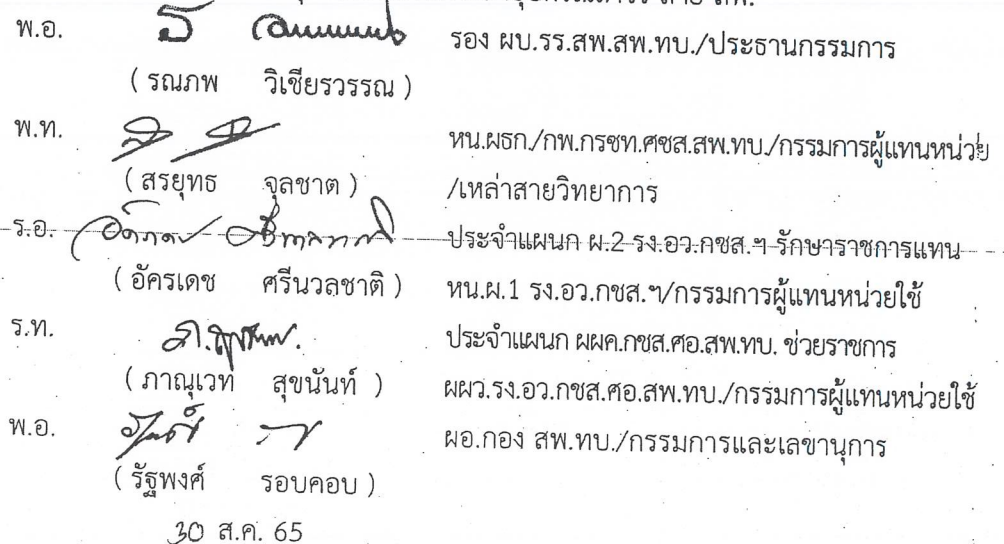 พ.อ. รอง ผบ.รร.สพ.สพ.ทบ./ประธานกรรมการ
( รณภพ วิเชียรวรรณ )
พ.ท. หน.ผธก./กพ.กรซท.ศซส.สพ.ทบ./กรรมการผู้แทนหน่วย
( สรยุทธ จุลชาต ) /เหล่าสายวิทยาการ
ร.อ. ประจำแผนก ผ.2 รง.อว.กซส.ฯ รักษาราชการแทน
( อัครเดช ศรีนวลชาติ ) หน.ผ.1 รง.อว.กซส.ฯ/กรรมการผู้แทนหน่วยใช้
ร.ท. ประจำแผนก ผผค.กซส.ศอ.สพ.ทบ. ช่วยราชการ
( ภาณุเวท สุขนันท์ ) ผผว.รง.อว.กซส.ศอ.สพ.ทบ./กรรมการผู้แทนหน่วยใช้
พ.อ. ผอ.กอง สพ.ทบ./กรรมการและเลขานุการ
( รัฐพงศ์ รอบคอบ )
30 ส.ค. 65